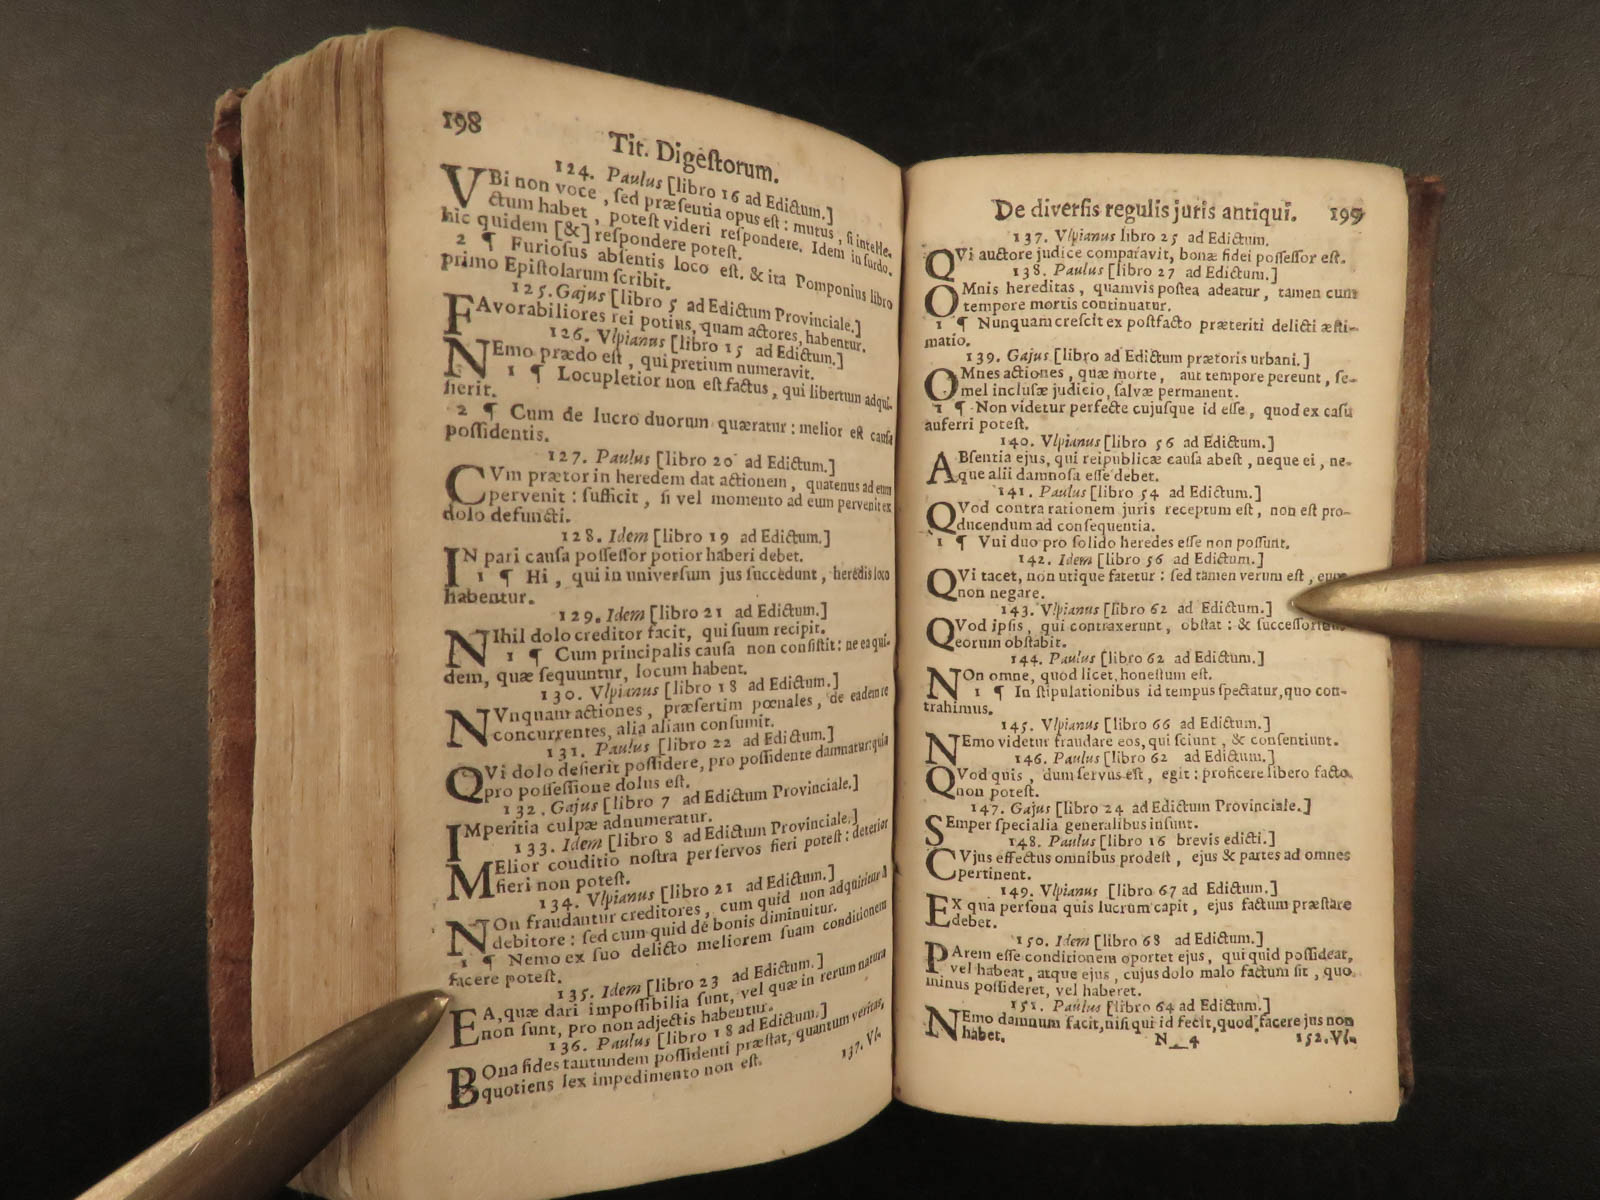 198
Tit. Digestorum.
124. Paulus [libro 16 ad Edictum.]
VBi non voce, sed præsentia opus est: mutus, si intelle-
ctum habet, potest videri respondere. Idem in surdo.
hic quidem [&] respondere potest.
2 ¶ Furiosus absentis loco est. & ita Pomponius libro
primo Epistolarum scribit.
125. Gajus [libro 5 ad Edictum Provinciale.]
FAvorabiliores rei potius, quam actores, habentur.
126. Vlpianus [libro 15 ad Edictum.]
NEmo prædo est, qui pretium numeravit.
1 ¶ Locupletior non est factus, qui libertum adqui-
sierit.
2 ¶ Cum de lucro duorum quæratur: melior est causa
possidentis.
127. Paulus [libro 20 ad Edictum.]
CVm prætor in heredem dat actionem, quatenus ad eum
pervenit: sufficit, si vel momento ad eum pervenit ex
dolo defuncti.
128. Idem [libro 19 ad Edictum.]
IN pari causa possessor potior haberi debet.
1 ¶ Hi, qui in universum jus succedunt, heredis loco
habentur.
129. Idem [libro 21 ad Edictum.]
NIhil dolo creditor facit, qui suum recipit.
1 ¶ Cum principalis causa non consistit: ne ea qui-
dem, quæ sequuntur, locum habent.
130. Vlpianus [libro 18 ad Edictum.]
NVnquam actiones, præsertim pœnales, de eadem re
concurrentes, alia aliam consumit.
131. Paulus [libro 22 ad Edictum.]
QVi dolo desierit possidere, pro possidente damnatur: quia
pro possessione dolus est.
132. Gajus [libro 7 ad Edictum Provinciale.]
IMperitia culpæ adnumeratur.
133. Idem [libro 8 ad Edictum Provinciale.]
MElior conditio nostra per servos fieri potest: deterior
fieri non potest.
134. Vlpianus [libro 21 ad Edictum.]
NOn fraudantur creditores, cum quid non adquiritur à
debitore: sed cum quid de bonis diminuitur.
1 ¶ Nemo ex suo delicto meliorem suam conditionem
facere potest.
135. Idem [libro 23 ad Edictum.]
EA, quæ dari impossibilia sunt, vel quæ in rerum natura
non sunt, pro non adjectis habentur.
136. Paulus [libro 18 ad Edictum.]
BOna fides tantundem possidenti præstat, quantum veritas,
quotiens lex impedimento non est.
137. Vl-
De diversis regulis juris antiqui. 199
137. Vlpianus libro 25 ad Edictum.
QVi auctore judice comparavit, bonæ fidei possessor est.
138. Paulus [libro 27 ad Edictum.]
OMnis hereditas, quamvis postea adeatur, tamen cum
tempore mortis continuatur.
1 ¶ Nunquam crescit ex postfacto præteriti delicti æsti-
matio.
139. Gajus [libro ad Edictum prætoris urbani.]
OMnes actiones, quæ morte, aut tempore pereunt, se-
mel inclusæ judicio, salvæ permanent.
1 ¶ Non videtur perfecte cujusque id esse, quod ex casu
auferri potest.
140. Vlpianus [libro 56 ad Edictum.]
ABsentia ejus, qui reipublicæ causa abest, neque ei, ne-
que alii damnosa esse debet.
141. Paulus [libro 54 ad Edictum.]
QVod contra rationem juris receptum est, non est pro-
ducendum ad consequentia.
1 ¶ Vni duo pro solido heredes esse non possunt.
142. Idem [libro 56 ad Edictum.]
QVi tacet, non utique fatetur: sed tamen verum est, eum
non negare.
143. Vlpianus [libro 62 ad Edictum.]
QVod ipsis, qui contraxerunt, obstat: & successoribus
eorum obstabit.
144. Paulus [libro 62 ad Edictum.]
NOn omne, quod licet, honestum est.
1 ¶ In stipulationibus id tempus spectatur, quo con-
trahimus.
145. Vlpianus [libro 66 ad Edictum.]
NEmo videtur fraudare eos, qui sciunt, & consentiunt.
146. Paulus [libro 62 ad Edictum.]
QVod quis, dum servus est, egit: proficere libero facto
non potest.
147. Gajus [libro 24 ad Edictum Provinciale.]
SEmper specialia generalibus insunt.
148. Paulus [libro 16 brevis edicti.]
CVjus effectus omnibus prodest, ejus & partes ad omnes
pertinent.
149. Vlpianus [libro 67 ad Edictum.]
EX qua persona quis lucrum capit, ejus factum præstare
debet.
150. Idem [libro 68 ad Edictum.]
PArem esse conditionem oportet ejus, qui quid possideat,
vel habeat, atque ejus, cujus dolo malo factum sit, quo
minus possideret, vel haberet.
151. Paulus [libro 64 ad Edictum.]
NEmo damnum facit, nisi qui id fecit, quod facere jus non
habet.
N 4 152. Vl-